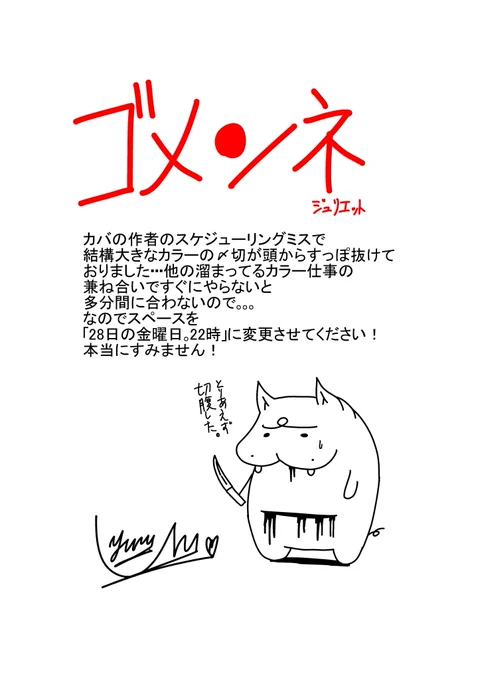 ゴメンネ
ジュリエット
カバの作者のスケジューリングミスで
結構大きなカラーの〆切が頭からすっぽ抜けて
おりました…他の溜まってるカラー仕事の
兼ね合いですぐにやらないと
多分間に合わないので。。。
なのでスペースを
「28日の金曜日。22時」に変更させてください！
本当にすみません！
とりあえず
切腹した。